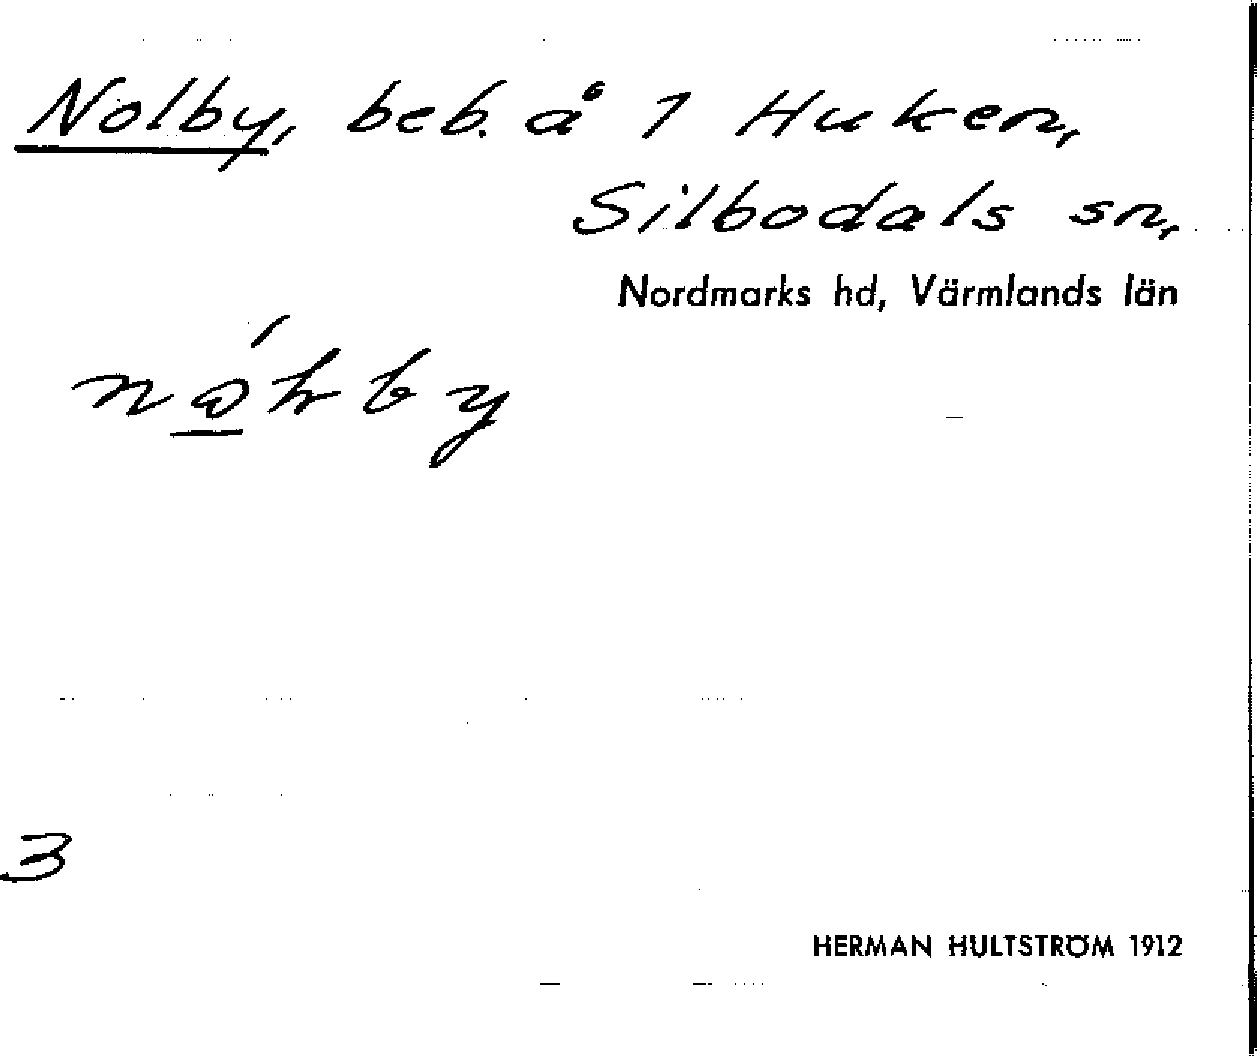 Nolby, beb. å 1 Huken,
Silbodals sn,
Nordmarks hd, Värmlands län
3
HERMAN HULTSTRÖM 1912